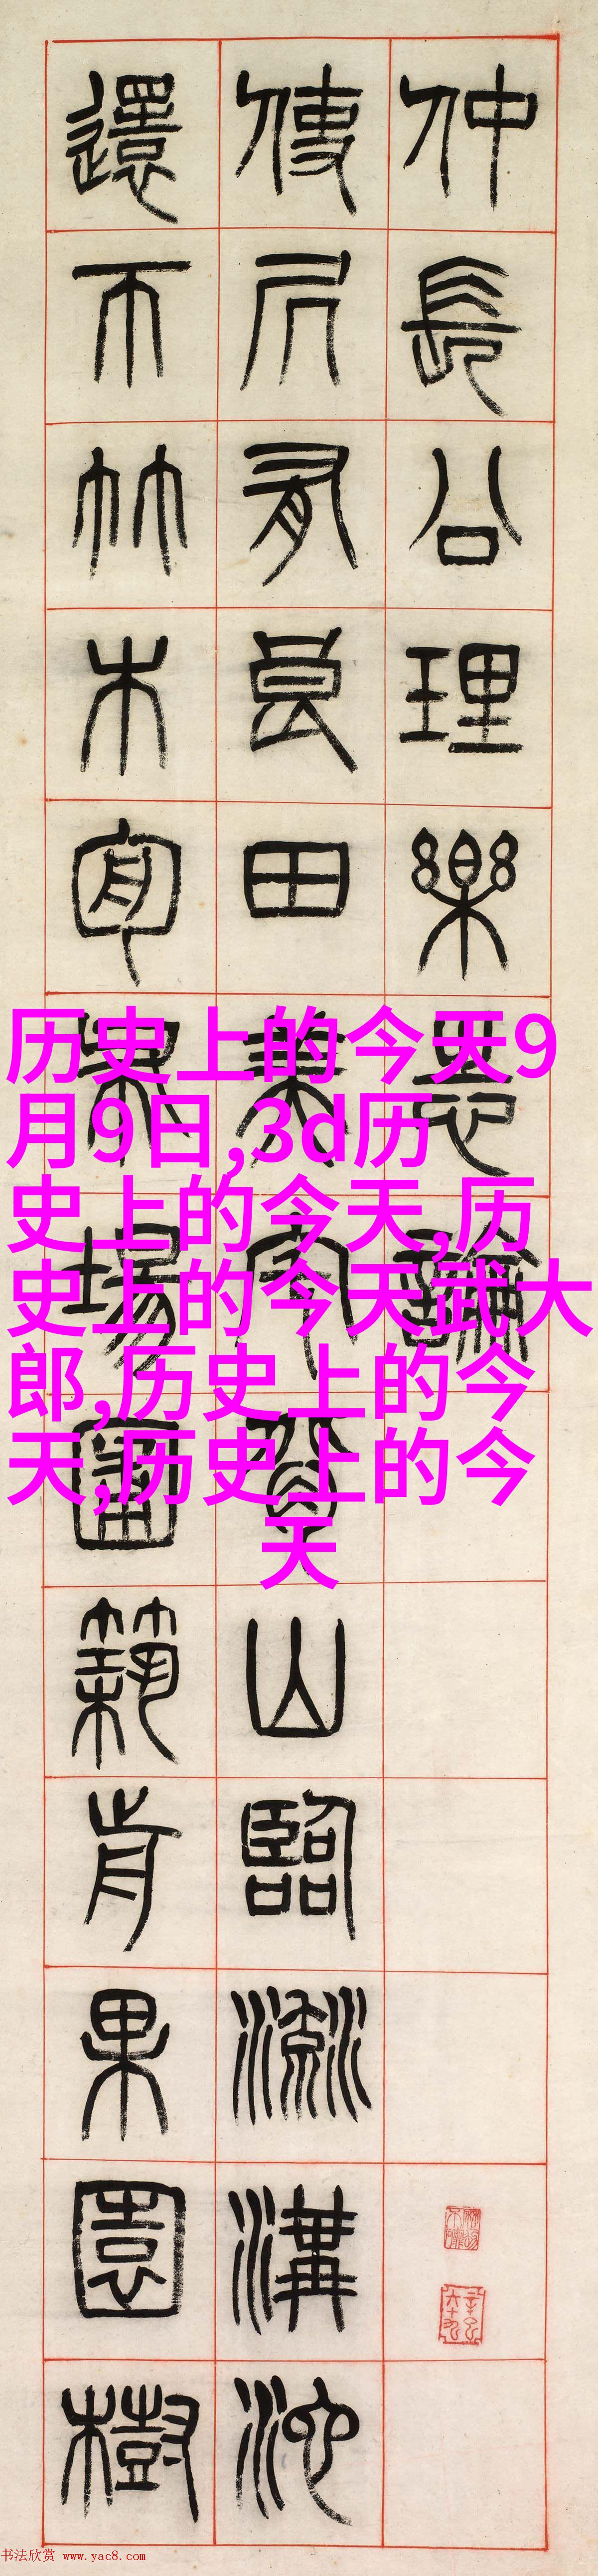 仲長公理樂志論
使凥有良田美宅背山臨流溝池
還帀竹木場圃築前果園樹
历史上的今天9
月9日,3d历
史上的今天,历
史上的今天武大
郎,历史上的今
天,历史上的今
天
书法欣赏 www.yac8.com